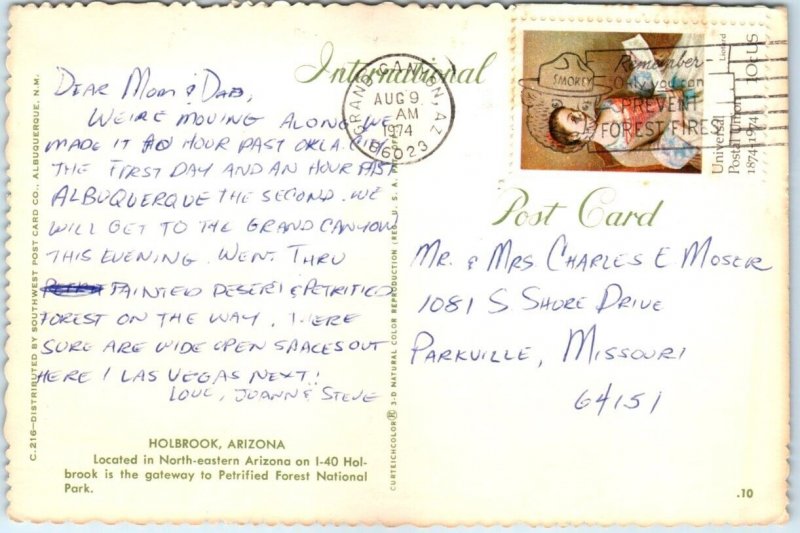 International
Post Card
DEAR MOM & DAD,
WE'RE MOVING ALONG. WE
MADE IT AN HOUR PAST OKLA. CITY
THE FIRST DAY AND AN HOUR PAST
ALBUQUERQUE THE SECOND. WE
WILL GET TO THE GRAND CANYON
THIS EVENING. WENT THRU
PAINTED DESERT & PETRIFIED
FOREST ON THE WAY. THERE
SURE ARE WIDE OPEN SPACES OUT
HERE! LAS VEGAS NEXT!
LOVE, JOANN & STEVE
HOLBROOK, ARIZONA
Located in North-eastern Arizona on I-40 Hol-
brook is the gateway to Petrified Forest National
Park.
C.216—DISTRIBUTED BY SOUTHWEST POST CARD CO., ALBUQUERQUE, N.M.
CURTEICHCOLOR® 3-D NATURAL COLOR REPRODUCTION (REG. U.S.A. PAT. OFF.)
GRAND CANYON, AZ
AUG 9
AM
1974
86023
SMOKEY
Remember-
Only you can
PREVENT
FOREST FIRES
Liotard
Universal
Postal Union
1874-1974
10c US
MR. & MRS CHARLES E MOSER
1081 S SHORE DRIVE
PARKVILLE, MISSOURI
64151
.10